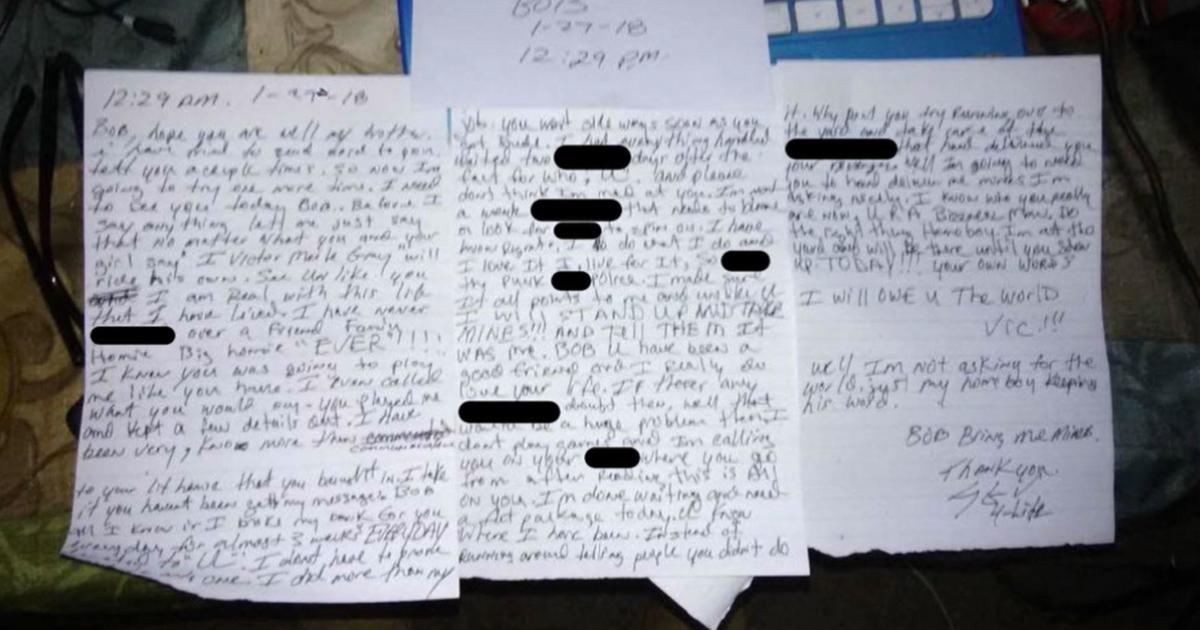 BOB
1-27-18
12:29 PM.
12:29 PM. 1-27-18
BOB, hope you are well my brother.
I have tried to send word to you
left you a couple times. So now Im
going to try one more time. I need
to see you today Bob. Before I
say any thing let me just say
that no matter what you and your
girl say" I Victor Mark Gray "will
ride his own. See Un like you
I am Real with this life
that I have lived. I have never
over a Friend Family
Homie Big homie "EVER"!!!.
I knew you was going to play
me like you have. I even called
what you would say - you played me
and kept a few details out. I have
been very, more then
to your lit homie that you in. I take
if you havent been getting my messages BOB
all I know is I my for you
everyday for almost 3 weeks EVERYDAY
to" U. I dont have to prove
one. I did more than my
job. you went old ways soon as you
got . I had everything handled
waited two days after the
fact for who, U. and please
dont think Im mad at you. Im not
a that needs to know
or look for to . I have
. I do what I do and
I love It I live for It. So
the Punk Police. I made sure
It all points to me and unlike U
I will STAND UP AND TAKE
MINES!!! AND TELL THEM It
WAS me. BOB U have been a
good friend and I Really do
love your life. If theres any
doubt then well that
would be a huge problem then. I
dont play games and Im calling
you on your where you go
from after Reading this is All
on you. I'm done waiting and need
a package today. U know
Where I have been. Instead of
Running around telling people you didnt do
it. Why dont you try Running over to
the yard and take care of the
that hand delivered you
your . Well Im going to need
you to hand deliver me mines Im
asking nicely. I know who you really
are now, U R A Business Man. Do
the right thing Homeboy. Im at the
yard and will be there until you show
up. TODAY!!! your OWN WORDS
I will OWE U The World
VIC!!!
well Im not asking for the
world. just my homeboy keeping
his word.
BOB Bring me Mines.
Thank you.
4-Life